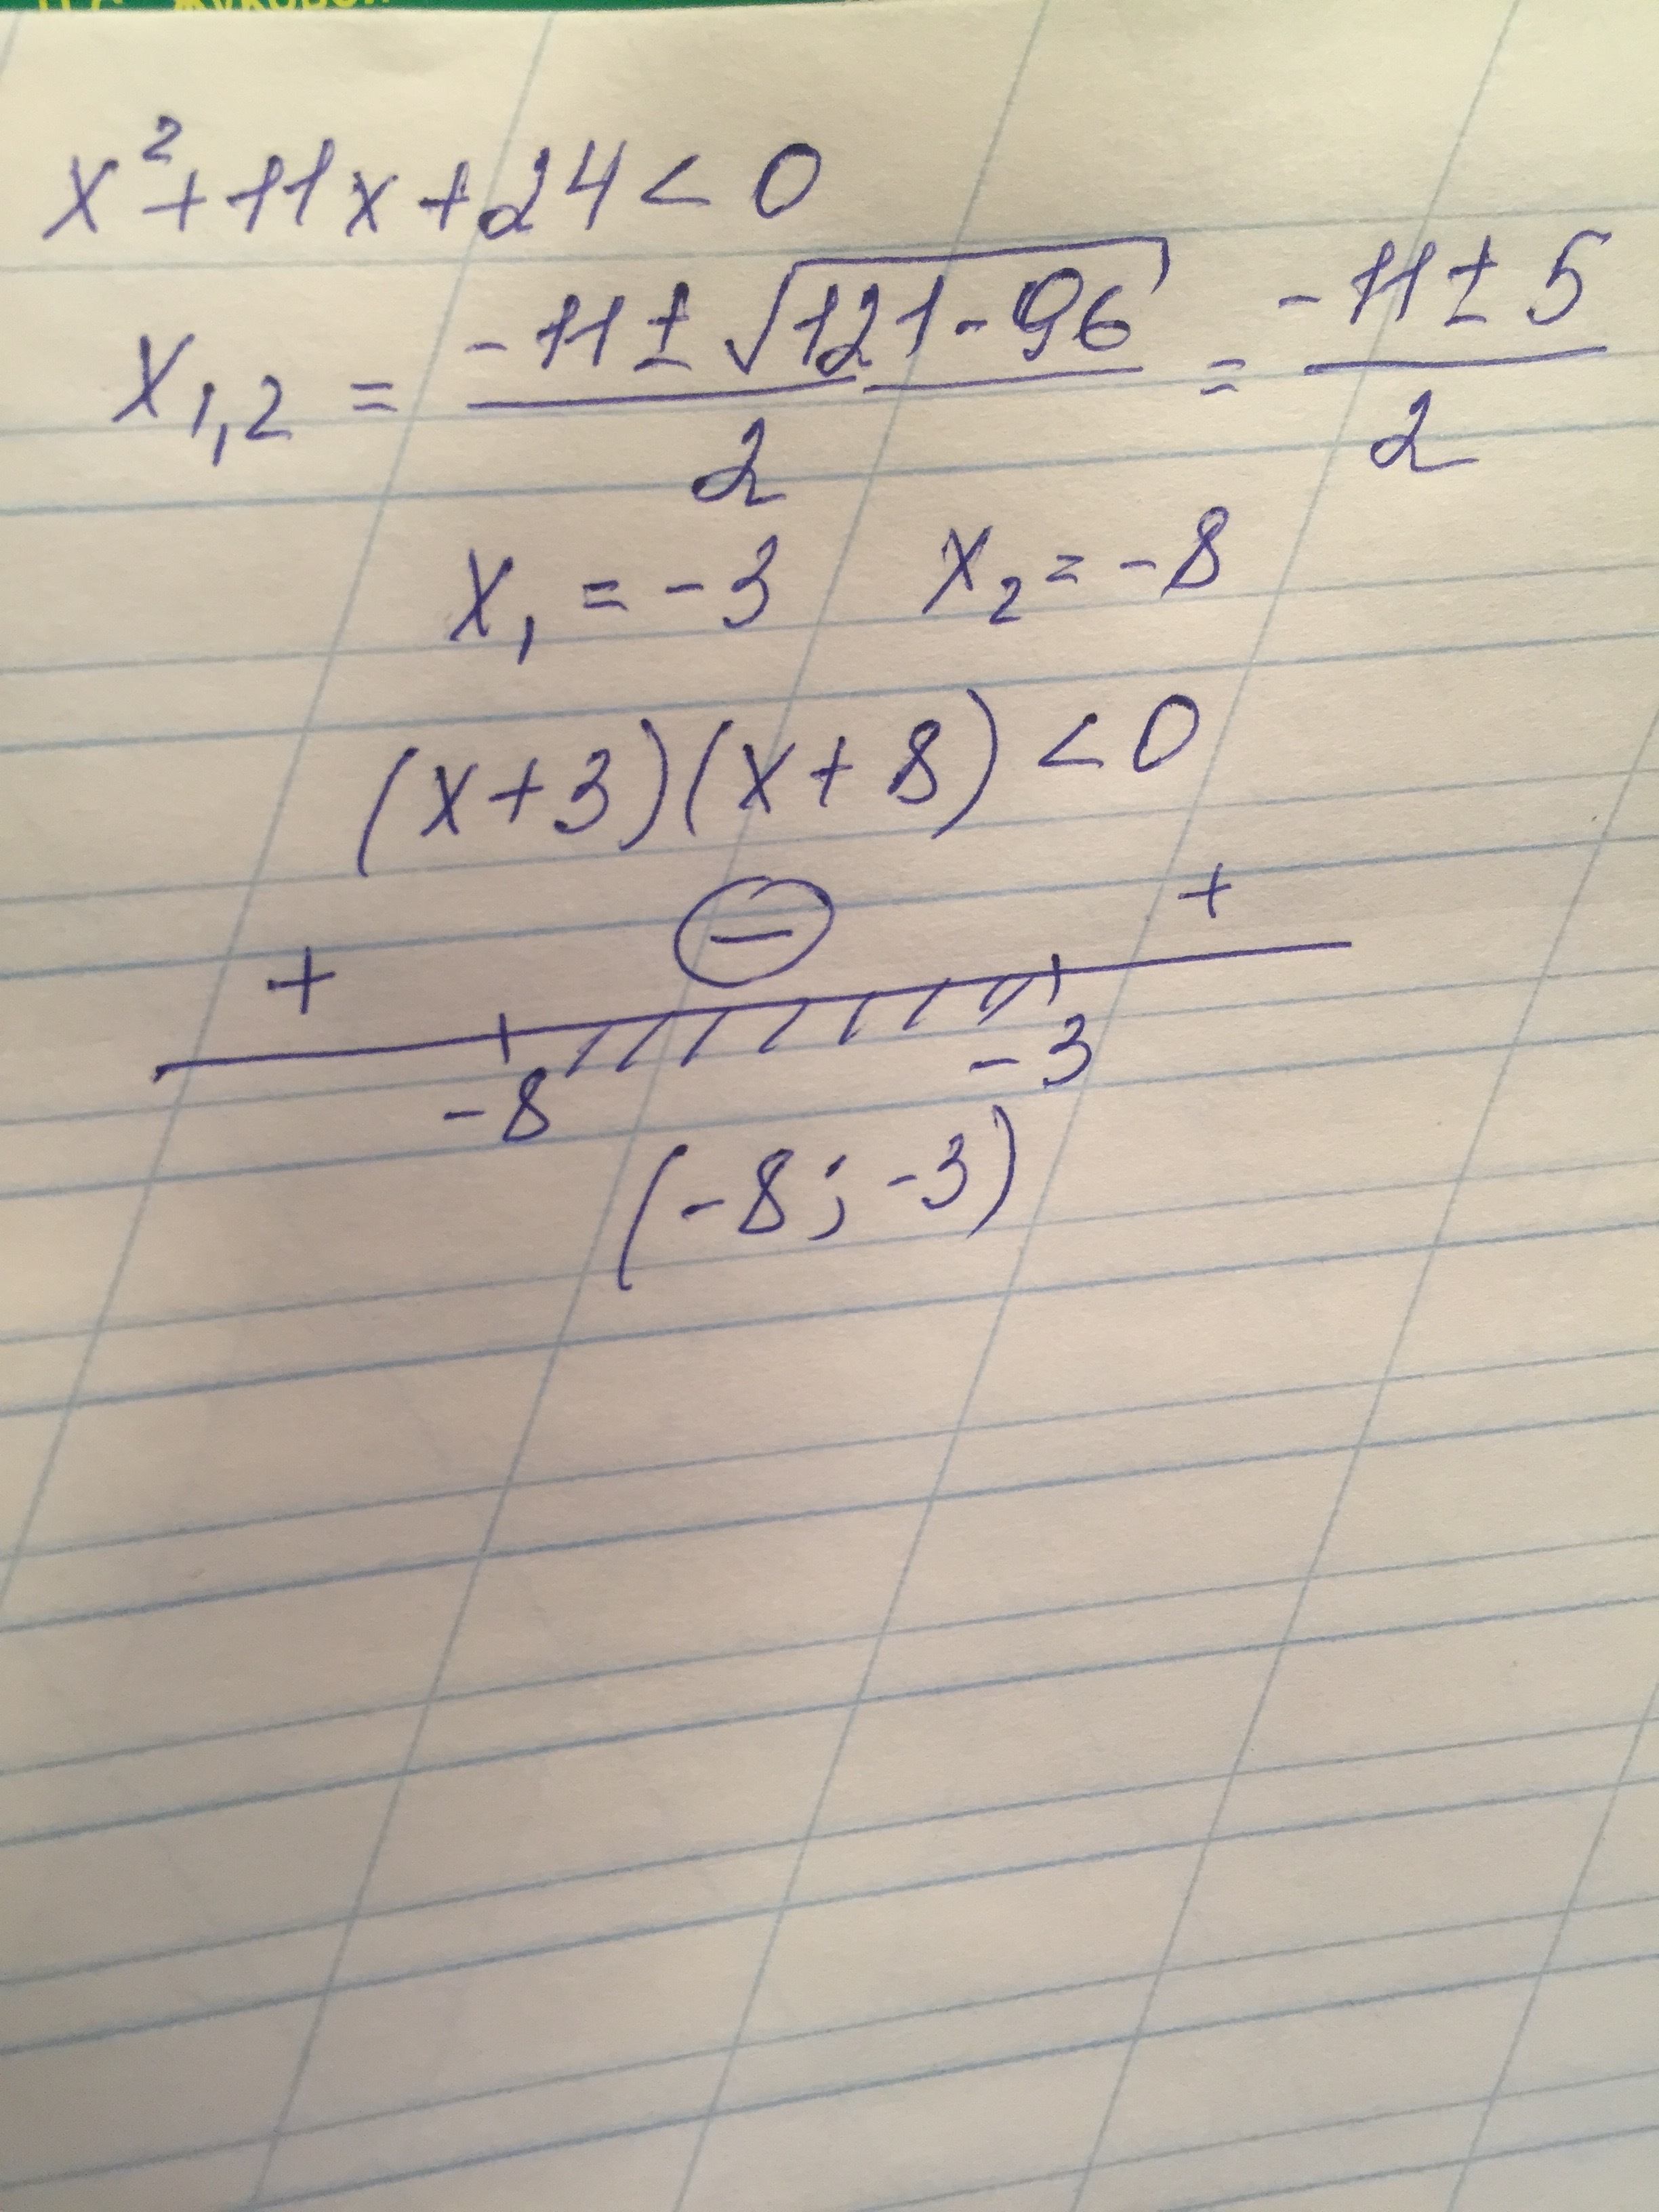 x² + 11x + 24 < 0
x₁,₂ = (-11 ± √(121 - 96)) / 2 = (-11 ± 5) / 2
x₁ = -3 x₂ = -8
(x + 3)(x + 8) < 0
+ − +
-8 -3
(-8; -3)